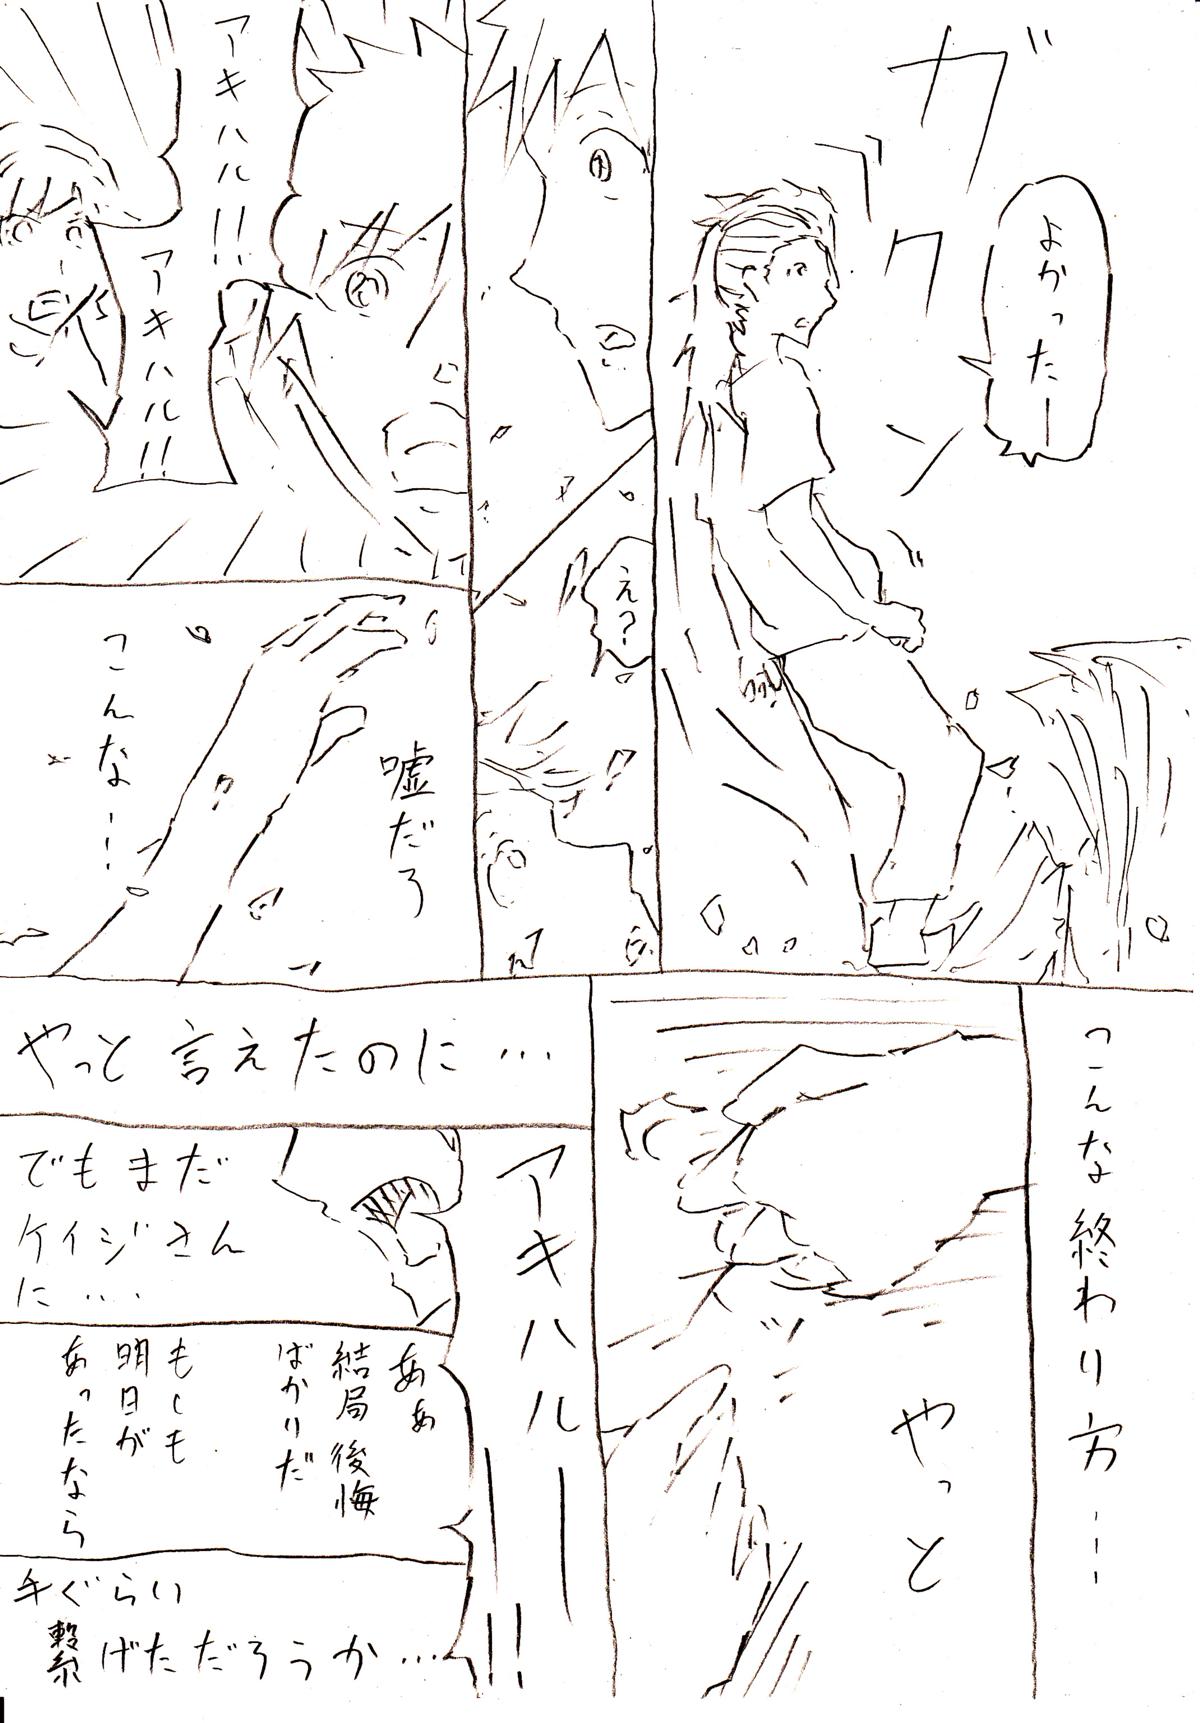 ガクン
よかったー
え?
アキハル!!
アキハル!!
嘘だろ
こんな…
こんな終わり方…
やっと
やっと言えたのに…
アキハルーー!!
でもまだ
ケイジさん
に…
ああ
結局後悔
ばかりだ
もしも
明日が
あったなら
手ぐらい
繋げただろうか…